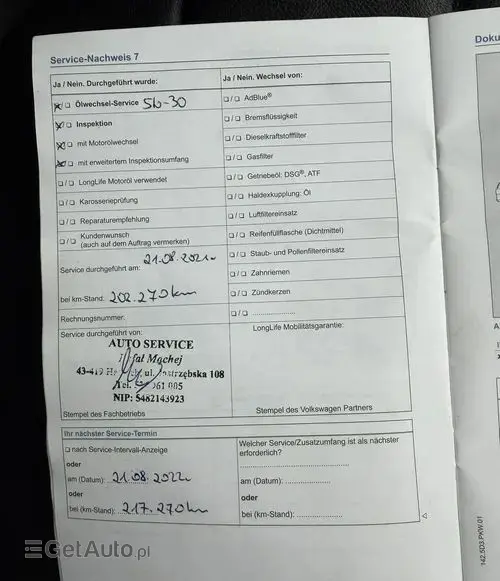 Service-Nachweis 7
Doku
Ja / Nein. Durchgeführt wurde:
Ja / Nein. Wechsel von:
☒/☐ Ölwechsel-Service 5W-30
☐/☐ AdBlue®
☒/☐ Inspektion
☐/☐ Bremsflüssigkeit
☒/☐ mit Motorölwechsel
☐/☐ Dieselkraftstofffilter
☒/☐ mit erweitertem Inspektionsumfang
☐/☐ Gasfilter
☐/☐ LongLife Motoröl verwendet
☐/☐ Getriebeöl: DSG®, ATF
☐/☐ Karosserieprüfung
☐/☐ Haldexkupplung: Öl
☐/☐ Reparaturempfehlung
☐/☐ Luftfiltereinsatz
☐/☐ Kundenwunsch
(auch auf dem Auftrag vermerken)
☐/☐ Reifenfüllflasche (Dichtmittel)
☐/☐ Staub- und Pollenfiltereinsatz
Service durchgeführt am: 21.08.2021
☐/☐ Zahnriemen
bei km-Stand: 202.270km
☐/☐ Zündkerzen
Rechnungsnummer:
☐/☐ ........................
Service durchgeführt von:
LongLife Mobilitätsgarantie:
AUTO SERVICE
Machej
43-419 ul. 108
061 005
NIP: 5482143923
Stempel des Fachbetriebs
Stempel des Volkswagen Partners
Ihr nächster Service-Termin
☐ nach Service-Intervall-Anzeige
Welcher Service/Zusatzumfang ist als nächster
erforderlich?
oder
am (Datum): 21.08.2022
am (Datum): ........................
oder
oder
bei (km-Stand): 217.270km
bei (km-Stand): ........................
142.5D3.PKW.01
GetAuto.pl